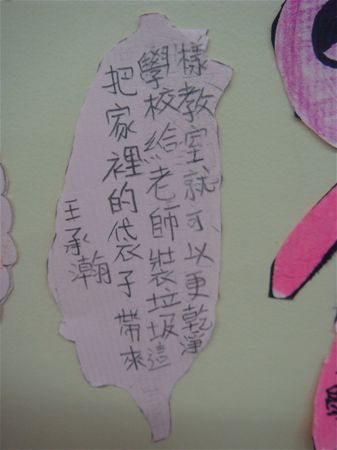 王承瀚
把家裡的袋子帶來
學校給老師裝垃圾這
樣教室就可以更乾淨